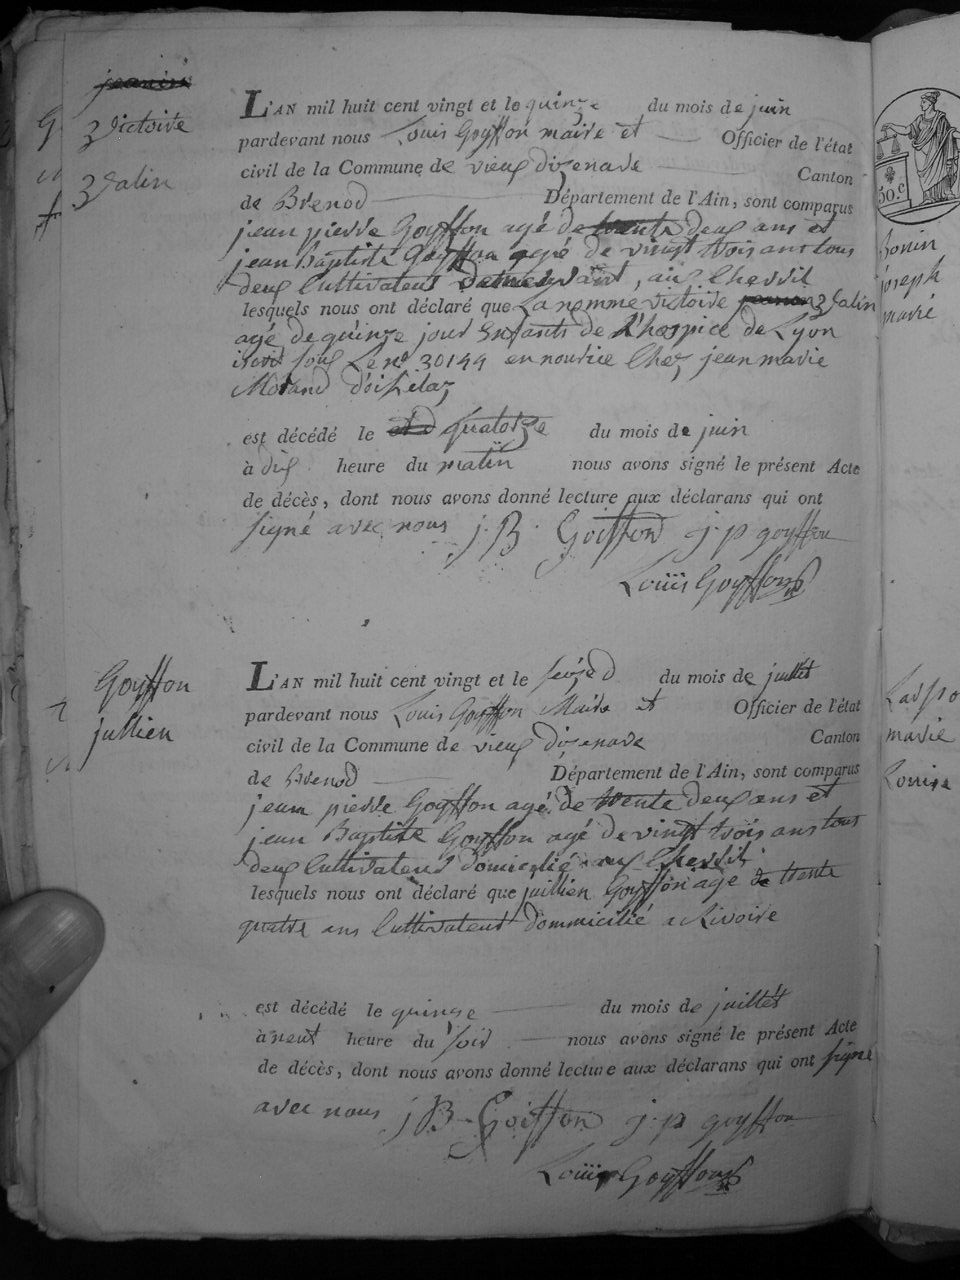 Victoire
Zalin
L'AN mil huit cent vingt et le quinze du mois de juin
pardevant nous Louis Goyffon maire et Officier de l'état
civil de la Commune de vieux dizenave Canton
de Brenod Département de l'Ain, sont comparus
jean pierre Goyffon agé de trente deux ans et
jean Baptiste Goyffon agé de vingt trois ans tous
deux Cultivateurs aux Chevril
lesquels nous ont déclaré que La nommé victoire Zalin
agé de quinze jour Enfants de L'hospice de Lyon
sous Le n° 30144 en nourice Chez jean marie
Morand d'oisselaz
est décédé le quatorze du mois de juin
à dix heure du matin nous avons signé le présent Acte
de décès, dont nous avons donné lecture aux déclarans qui ont
signé avec nous J. B. Goiffon j. p goyffon
Louis Goyffon
Goyffon
jullien
L'AN mil huit cent vingt et le seize du mois de juillet
pardevant nous Louis Goyffon Maire et Officier de l'état
civil de la Commune de vieux dizenave Canton
de Brenod Département de l'Ain, sont comparus
jean pierre Goyffon agé de trente deux ans et
jean Baptiste Goyffon agé de vingt trois ans tous
deux Cultivateurs domicilié aux Chevril
lesquels nous ont déclaré que juillien Goyffon agé de trente
quatre ans Cultivateur dommicilié a Rivoire
est décédé le quinze du mois de juillet
à neuf heure du soir nous avons signé le présent Acte
de décès, dont nous avons donné lecture aux déclarans qui ont signé
avec nous J B. Goiffon j. p goyffon
Louis Goyffon
50.c
Bonin
joseph
marié
marie
Louise